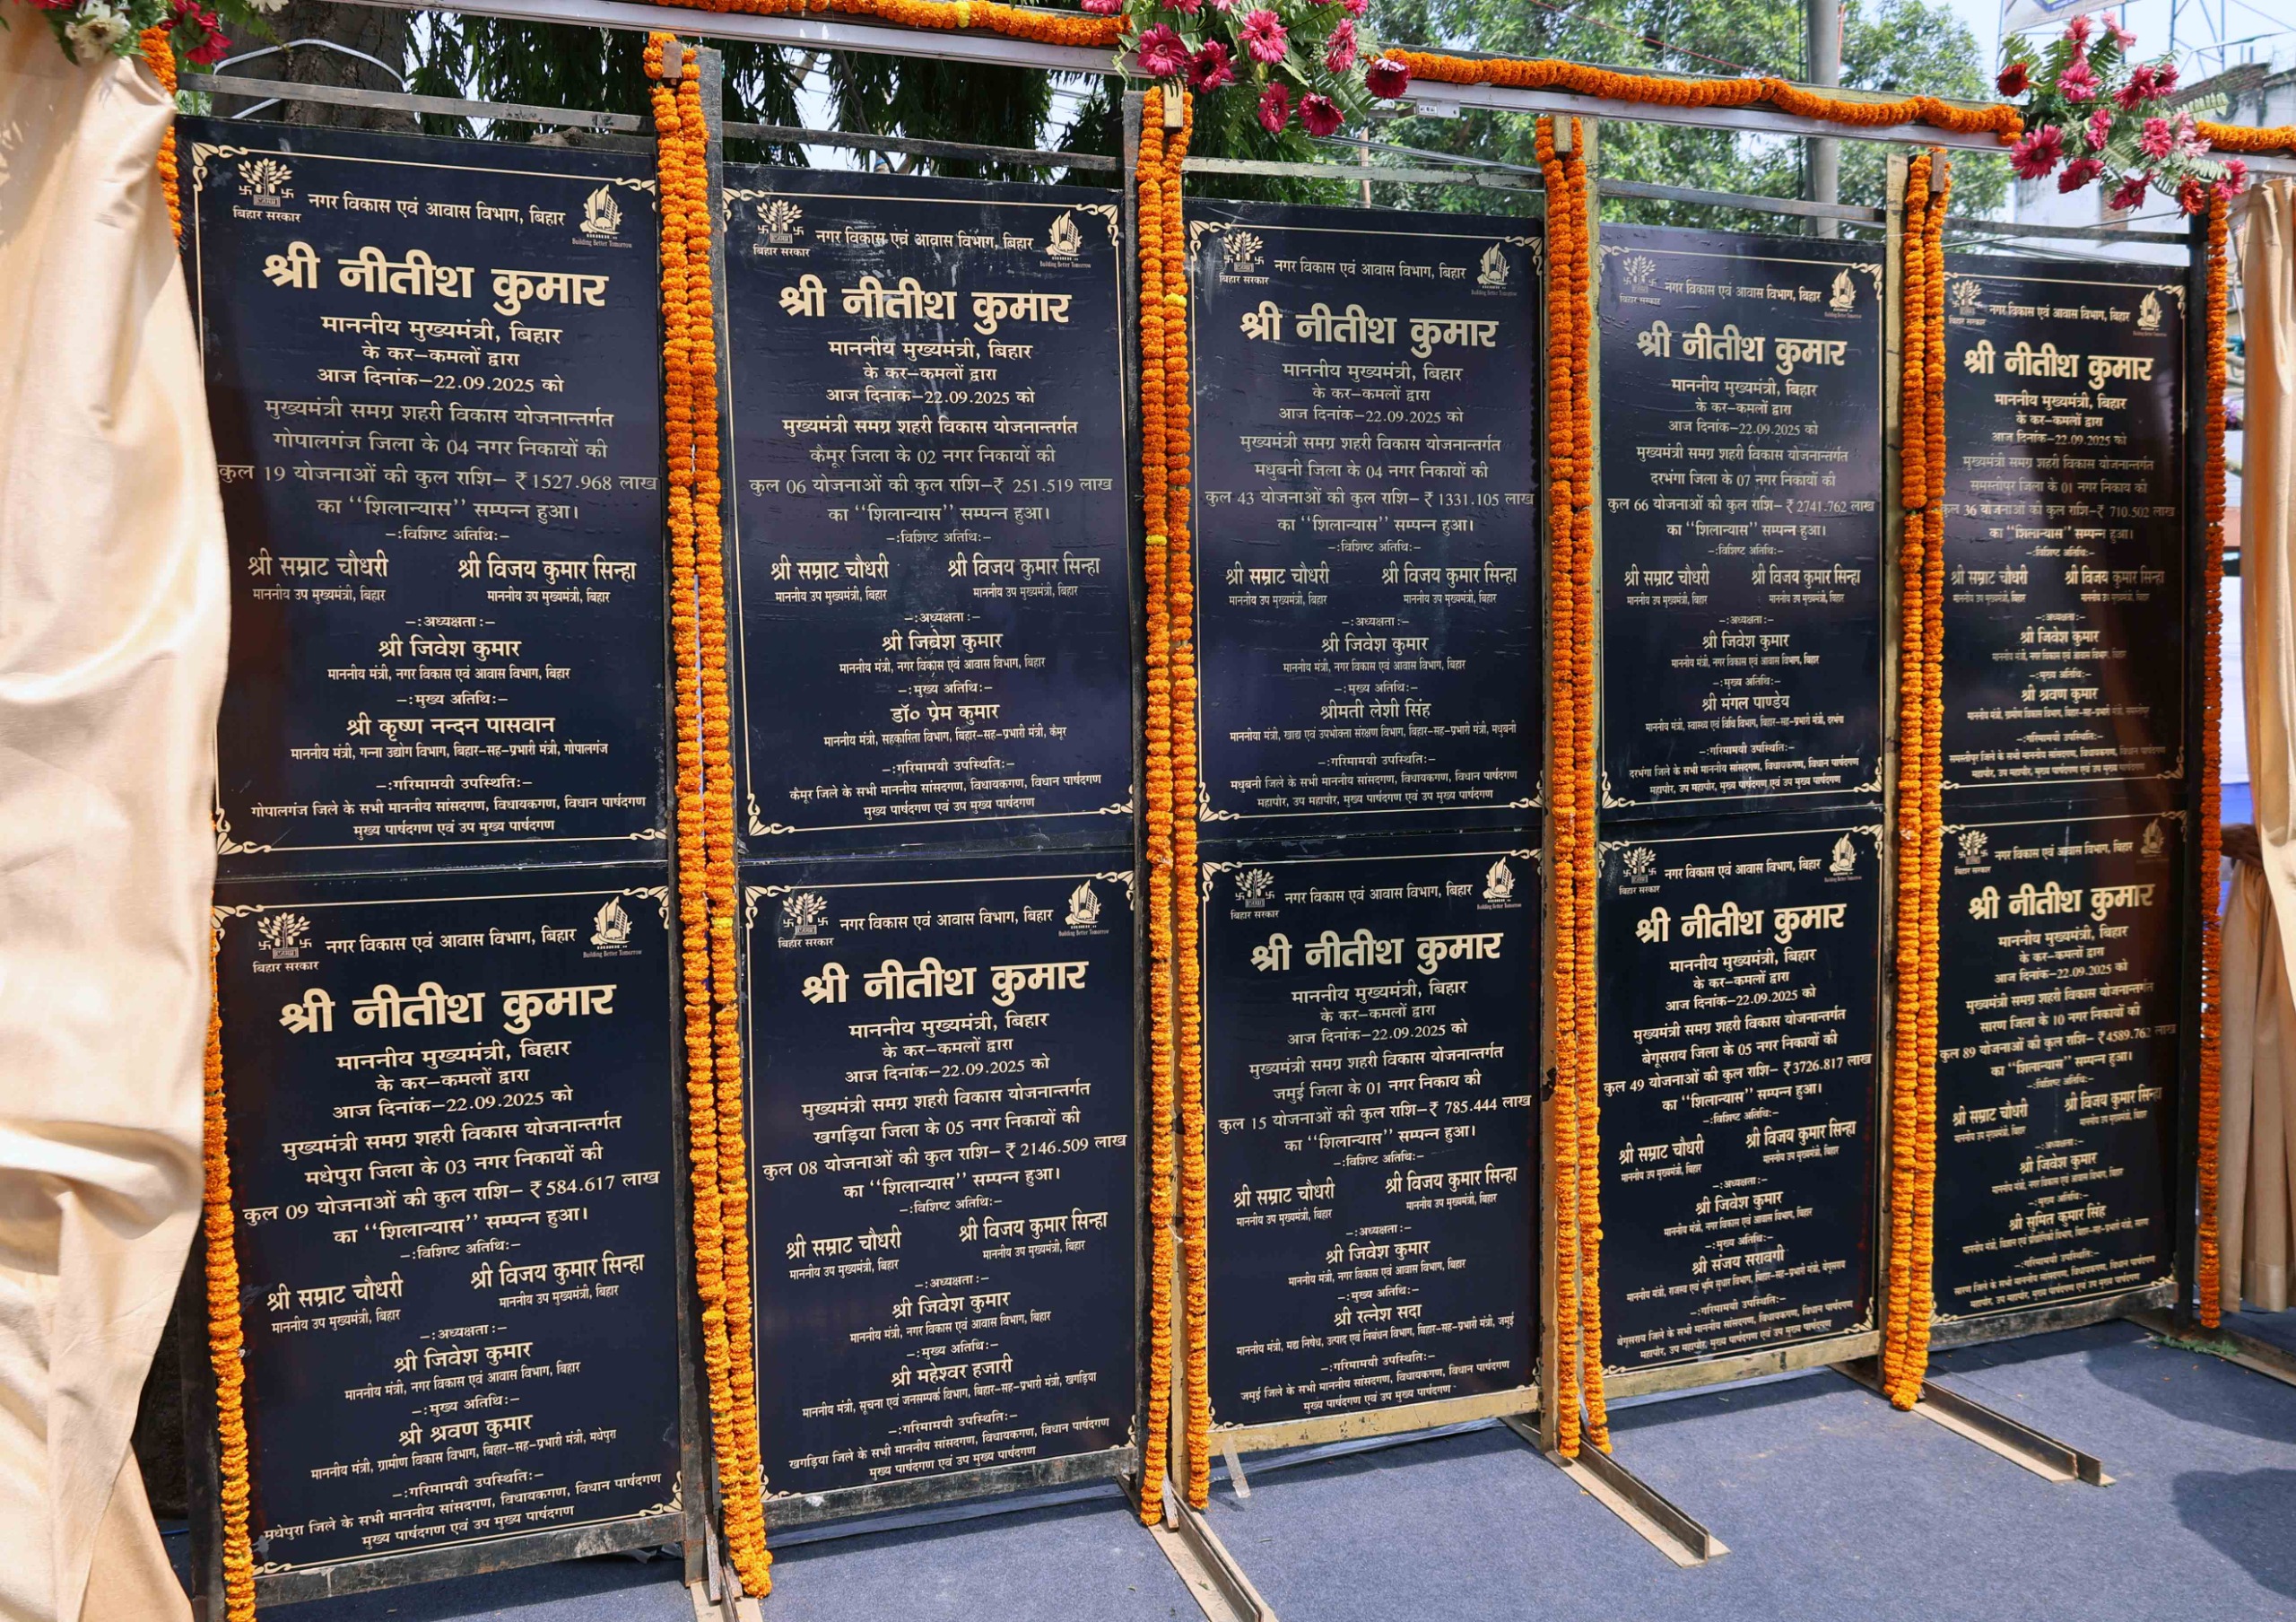 बिहार सरकार
नगर विकास एवं आवास विभाग, बिहार
Building Better Tomorrow
श्री नीतीश कुमार
माननीय मुख्यमंत्री, बिहार
के कर–कमलों द्वारा
आज दिनांक–22.09.2025 को
मुख्यमंत्री समग्र शहरी विकास योजनान्तर्गत
गोपालगंज जिला के 04 नगर निकायों की
कुल 19 योजनाओं की कुल राशि– ₹ 1527.968 लाख
का ‘‘शिलान्यास’’ सम्पन्न हुआ।
–:विशिष्ट अतिथि:–
श्री सम्राट चौधरी श्री विजय कुमार सिन्हा
माननीय उप मुख्यमंत्री, बिहार माननीय उप मुख्यमंत्री, बिहार
–:अध्यक्षता:–
श्री जिवेश कुमार
माननीय मंत्री, नगर विकास एवं आवास विभाग, बिहार
–:मुख्य अतिथि:–
श्री कृष्ण नन्दन पासवान
माननीय मंत्री, गन्ना उद्योग विभाग, बिहार–सह–प्रभारी मंत्री, गोपालगंज
–:गरिमामयी उपस्थिति:–
गोपालगंज जिले के सभी माननीय सांसदगण, विधायकगण, विधान पार्षदगण
मुख्य पार्षदगण एवं उप मुख्य पार्षदगण
बिहार सरकार
नगर विकास एवं आवास विभाग, बिहार
Building Better Tomorrow
श्री नीतीश कुमार
माननीय मुख्यमंत्री, बिहार
के कर–कमलों द्वारा
आज दिनांक–22.09.2025 को
मुख्यमंत्री समग्र शहरी विकास योजनान्तर्गत
कैमूर जिला के 02 नगर निकायों की
कुल 06 योजनाओं की कुल राशि–₹ 251.519 लाख
का ‘‘शिलान्यास’’ सम्पन्न हुआ।
–:विशिष्ट अतिथि:–
श्री सम्राट चौधरी श्री विजय कुमार सिन्हा
माननीय उप मुख्यमंत्री, बिहार माननीय उप मुख्यमंत्री, बिहार
–:अध्यक्षता:–
श्री जिवेश कुमार
माननीय मंत्री, नगर विकास एवं आवास विभाग, बिहार
–:मुख्य अतिथि:–
डॉ० प्रेम कुमार
माननीय मंत्री, सहकारिता विभाग, बिहार–सह–प्रभारी मंत्री, कैमूर
–:गरिमामयी उपस्थिति:–
कैमूर जिले के सभी माननीय सांसदगण, विधायकगण, विधान पार्षदगण
मुख्य पार्षदगण एवं उप मुख्य पार्षदगण
बिहार सरकार
नगर विकास एवं आवास विभाग, बिहार
Building Better Tomorrow
श्री नीतीश कुमार
माननीय मुख्यमंत्री, बिहार
के कर–कमलों द्वारा
आज दिनांक–22.09.2025 को
मुख्यमंत्री समग्र शहरी विकास योजनान्तर्गत
मधुबनी जिला के 04 नगर निकायों की
कुल 43 योजनाओं की कुल राशि– ₹ 1331.105 लाख
का ‘‘शिलान्यास’’ सम्पन्न हुआ।
–:विशिष्ट अतिथि:–
श्री सम्राट चौधरी श्री विजय कुमार सिन्हा
माननीय उप मुख्यमंत्री, बिहार माननीय उप मुख्यमंत्री, बिहार
–:अध्यक्षता:–
श्री जिवेश कुमार
माननीय मंत्री, नगर विकास एवं आवास विभाग, बिहार
–:मुख्य अतिथि:–
श्रीमती लेशी सिंह
माननीया मंत्री, खाद्य एवं उपभोक्ता संरक्षण विभाग, बिहार–सह–प्रभारी मंत्री, मधुबनी
–:गरिमामयी उपस्थिति:–
मधुबनी जिले के सभी माननीय सांसदगण, विधायकगण, विधान पार्षदगण
महापौर, उप महापौर, मुख्य पार्षदगण एवं उप मुख्य पार्षदगण
बिहार सरकार
नगर विकास एवं आवास विभाग, बिहार
Building Better Tomorrow
श्री नीतीश कुमार
माननीय मुख्यमंत्री, बिहार
के कर–कमलों द्वारा
आज दिनांक–22.09.2025 को
मुख्यमंत्री समग्र शहरी विकास योजनान्तर्गत
दरभंगा जिला के 07 नगर निकायों की
कुल 66 योजनाओं की कुल राशि– ₹ 2741.762 लाख
का ‘‘शिलान्यास’’ सम्पन्न हुआ।
–:विशिष्ट अतिथि:–
श्री सम्राट चौधरी श्री विजय कुमार सिन्हा
माननीय उप मुख्यमंत्री, बिहार माननीय उप मुख्यमंत्री, बिहार
–:अध्यक्षता:–
श्री जिवेश कुमार
माननीय मंत्री, नगर विकास एवं आवास विभाग, बिहार
–:मुख्य अतिथि:–
श्री मंगल पाण्डेय
माननीय मंत्री, स्वास्थ्य एवं विधि विभाग, बिहार–सह–प्रभारी मंत्री, दरभंगा
–:गरिमामयी उपस्थिति:–
दरभंगा जिले के सभी माननीय सांसदगण, विधायकगण, विधान पार्षदगण
महापौर, उप महापौर, मुख्य पार्षदगण एवं उप मुख्य पार्षदगण
बिहार सरकार
नगर विकास एवं आवास विभाग, बिहार
श्री नीतीश कुमार
माननीय मुख्यमंत्री, बिहार
के कर–कमलों द्वारा
आज दिनांक–22.09.2025 को
मुख्यमंत्री समग्र शहरी विकास योजनान्तर्गत
समस्तीपुर जिला के 01 नगर निकाय की
कुल 36 योजनाओं की कुल राशि–₹ 710.502 लाख
का ‘‘शिलान्यास’’ सम्पन्न हुआ।
–:विशिष्ट अतिथि:–
श्री सम्राट चौधरी श्री विजय कुमार सिन्हा
माननीय उप मुख्यमंत्री, बिहार माननीय उप मुख्यमंत्री, बिहार
–:अध्यक्षता:–
श्री जिवेश कुमार
माननीय मंत्री, नगर विकास एवं आवास विभाग, बिहार
–:मुख्य अतिथि:–
श्री श्रवण कुमार
माननीय मंत्री, ग्रामीण विकास विभाग, बिहार–सह–प्रभारी मंत्री,
–:गरिमामयी उपस्थिति:–
समस्तीपुर जिले के सभी माननीय सांसदगण, विधायकगण, विधान पार्षदगण
महापौर, उप महापौर, मुख्य पार्षदगण एवं उप मुख्य पार्षदगण
बिहार सरकार
नगर विकास एवं आवास विभाग, बिहार
Building Better Tomorrow
श्री नीतीश कुमार
माननीय मुख्यमंत्री, बिहार
के कर–कमलों द्वारा
आज दिनांक–22.09.2025 को
मुख्यमंत्री समग्र शहरी विकास योजनान्तर्गत
मधेपुरा जिला के 03 नगर निकायों की
कुल 09 योजनाओं की कुल राशि– ₹ 584.617 लाख
का ‘‘शिलान्यास’’ सम्पन्न हुआ।
–:विशिष्ट अतिथि:–
श्री सम्राट चौधरी श्री विजय कुमार सिन्हा
माननीय उप मुख्यमंत्री, बिहार माननीय उप मुख्यमंत्री, बिहार
–:अध्यक्षता:–
श्री जिवेश कुमार
माननीय मंत्री, नगर विकास एवं आवास विभाग, बिहार
–:मुख्य अतिथि:–
श्री श्रवण कुमार
माननीय मंत्री, ग्रामीण विकास विभाग, बिहार–सह–प्रभारी मंत्री, मधेपुरा
–:गरिमामयी उपस्थिति:–
मधेपुरा जिले के सभी माननीय सांसदगण, विधायकगण, विधान पार्षदगण
मुख्य पार्षदगण एवं उप मुख्य पार्षदगण
बिहार सरकार
नगर विकास एवं आवास विभाग, बिहार
Building Better Tomorrow
श्री नीतीश कुमार
माननीय मुख्यमंत्री, बिहार
के कर–कमलों द्वारा
आज दिनांक–22.09.2025 को
मुख्यमंत्री समग्र शहरी विकास योजनान्तर्गत
खगड़िया जिला के 05 नगर निकायों की
कुल 08 योजनाओं की कुल राशि– ₹ 2146.509 लाख
का ‘‘शिलान्यास’’ सम्पन्न हुआ।
–:विशिष्ट अतिथि:–
श्री सम्राट चौधरी श्री विजय कुमार सिन्हा
माननीय उप मुख्यमंत्री, बिहार माननीय उप मुख्यमंत्री, बिहार
–:अध्यक्षता:–
श्री जिवेश कुमार
माननीय मंत्री, नगर विकास एवं आवास विभाग, बिहार
–:मुख्य अतिथि:–
श्री महेश्वर हजारी
माननीय मंत्री, सूचना एवं जनसम्पर्क विभाग, बिहार–सह–प्रभारी मंत्री, खगड़िया
–:गरिमामयी उपस्थिति:–
खगड़िया जिले के सभी माननीय सांसदगण, विधायकगण, विधान पार्षदगण
मुख्य पार्षदगण एवं उप मुख्य पार्षदगण
बिहार सरकार
नगर विकास एवं आवास विभाग, बिहार
Building Better Tomorrow
श्री नीतीश कुमार
माननीय मुख्यमंत्री, बिहार
के कर–कमलों द्वारा
आज दिनांक–22.09.2025 को
मुख्यमंत्री समग्र शहरी विकास योजनान्तर्गत
जमुई जिला के 01 नगर निकाय की
कुल 15 योजनाओं की कुल राशि–₹ 785.444 लाख
का ‘‘शिलान्यास’’ सम्पन्न हुआ।
–:विशिष्ट अतिथि:–
श्री सम्राट चौधरी श्री विजय कुमार सिन्हा
माननीय उप मुख्यमंत्री, बिहार माननीय उप मुख्यमंत्री, बिहार
–:अध्यक्षता:–
श्री जिवेश कुमार
माननीय मंत्री, नगर विकास एवं आवास विभाग, बिहार
–:मुख्य अतिथि:–
श्री रत्नेश सदा
माननीय मंत्री, मद्य निषेध, उत्पाद एवं निबंधन विभाग, बिहार–सह–प्रभारी मंत्री, जमुई
–:गरिमामयी उपस्थिति:–
जमुई जिले के सभी माननीय सांसदगण, विधायकगण, विधान पार्षदगण
मुख्य पार्षदगण एवं उप मुख्य पार्षदगण
बिहार सरकार
नगर विकास एवं आवास विभाग, बिहार
Building Better Tomorrow
श्री नीतीश कुमार
माननीय मुख्यमंत्री, बिहार
के कर–कमलों द्वारा
आज दिनांक–22.09.2025 को
मुख्यमंत्री समग्र शहरी विकास योजनान्तर्गत
बेगूसराय जिला के 05 नगर निकायों की
कुल 49 योजनाओं की कुल राशि– ₹3726.817 लाख
का ‘‘शिलान्यास’’ सम्पन्न हुआ।
–:विशिष्ट अतिथि:–
श्री सम्राट चौधरी श्री विजय कुमार सिन्हा
माननीय उप मुख्यमंत्री, बिहार माननीय उप मुख्यमंत्री, बिहार
–:अध्यक्षता:–
श्री जिवेश कुमार
माननीय मंत्री, नगर विकास एवं आवास विभाग, बिहार
–:मुख्य अतिथि:–
श्री संजय सरावगी
माननीय मंत्री, राजस्व एवं भूमि सुधार विभाग, बिहार–सह–प्रभारी मंत्री, बेगूसराय
–:गरिमामयी उपस्थिति:–
बेगूसराय जिले के सभी माननीय सांसदगण, विधायकगण, विधान पार्षदगण
महापौर, उप महापौर, मुख्य पार्षदगण एवं उप मुख्य पार्षदगण
बिहार सरकार
नगर विकास एवं आवास विभाग, बिहार
श्री नीतीश कुमार
माननीय मुख्यमंत्री, बिहार
के कर–कमलों द्वारा
आज दिनांक–22.09.2025 को
मुख्यमंत्री समग्र शहरी विकास योजनान्तर्गत
सारण जिला के 10 नगर निकायों की
कुल 89 योजनाओं की कुल राशि– ₹4589.762 लाख
का ‘‘शिलान्यास’’ सम्पन्न हुआ।
–:विशिष्ट अतिथि:–
श्री सम्राट चौधरी श्री विजय कुमार सिन्हा
माननीय उप मुख्यमंत्री, बिहार माननीय उप मुख्यमंत्री, बिहार
–:अध्यक्षता:–
श्री जिवेश कुमार
माननीय मंत्री, नगर विकास एवं आवास विभाग, बिहार
–:मुख्य अतिथि:–
श्री सुमित कुमार सिंह
माननीय मंत्री, विज्ञान एवं प्रावैधिकी विभाग, बिहार–सह–प्रभारी मंत्री, सारण
–:गरिमामयी उपस्थिति:–
सारण जिले के सभी माननीय सांसदगण, विधायकगण, विधान पार्षदगण
महापौर, उप महापौर, मुख्य पार्षदगण एवं उप मुख्य पार्षदगण